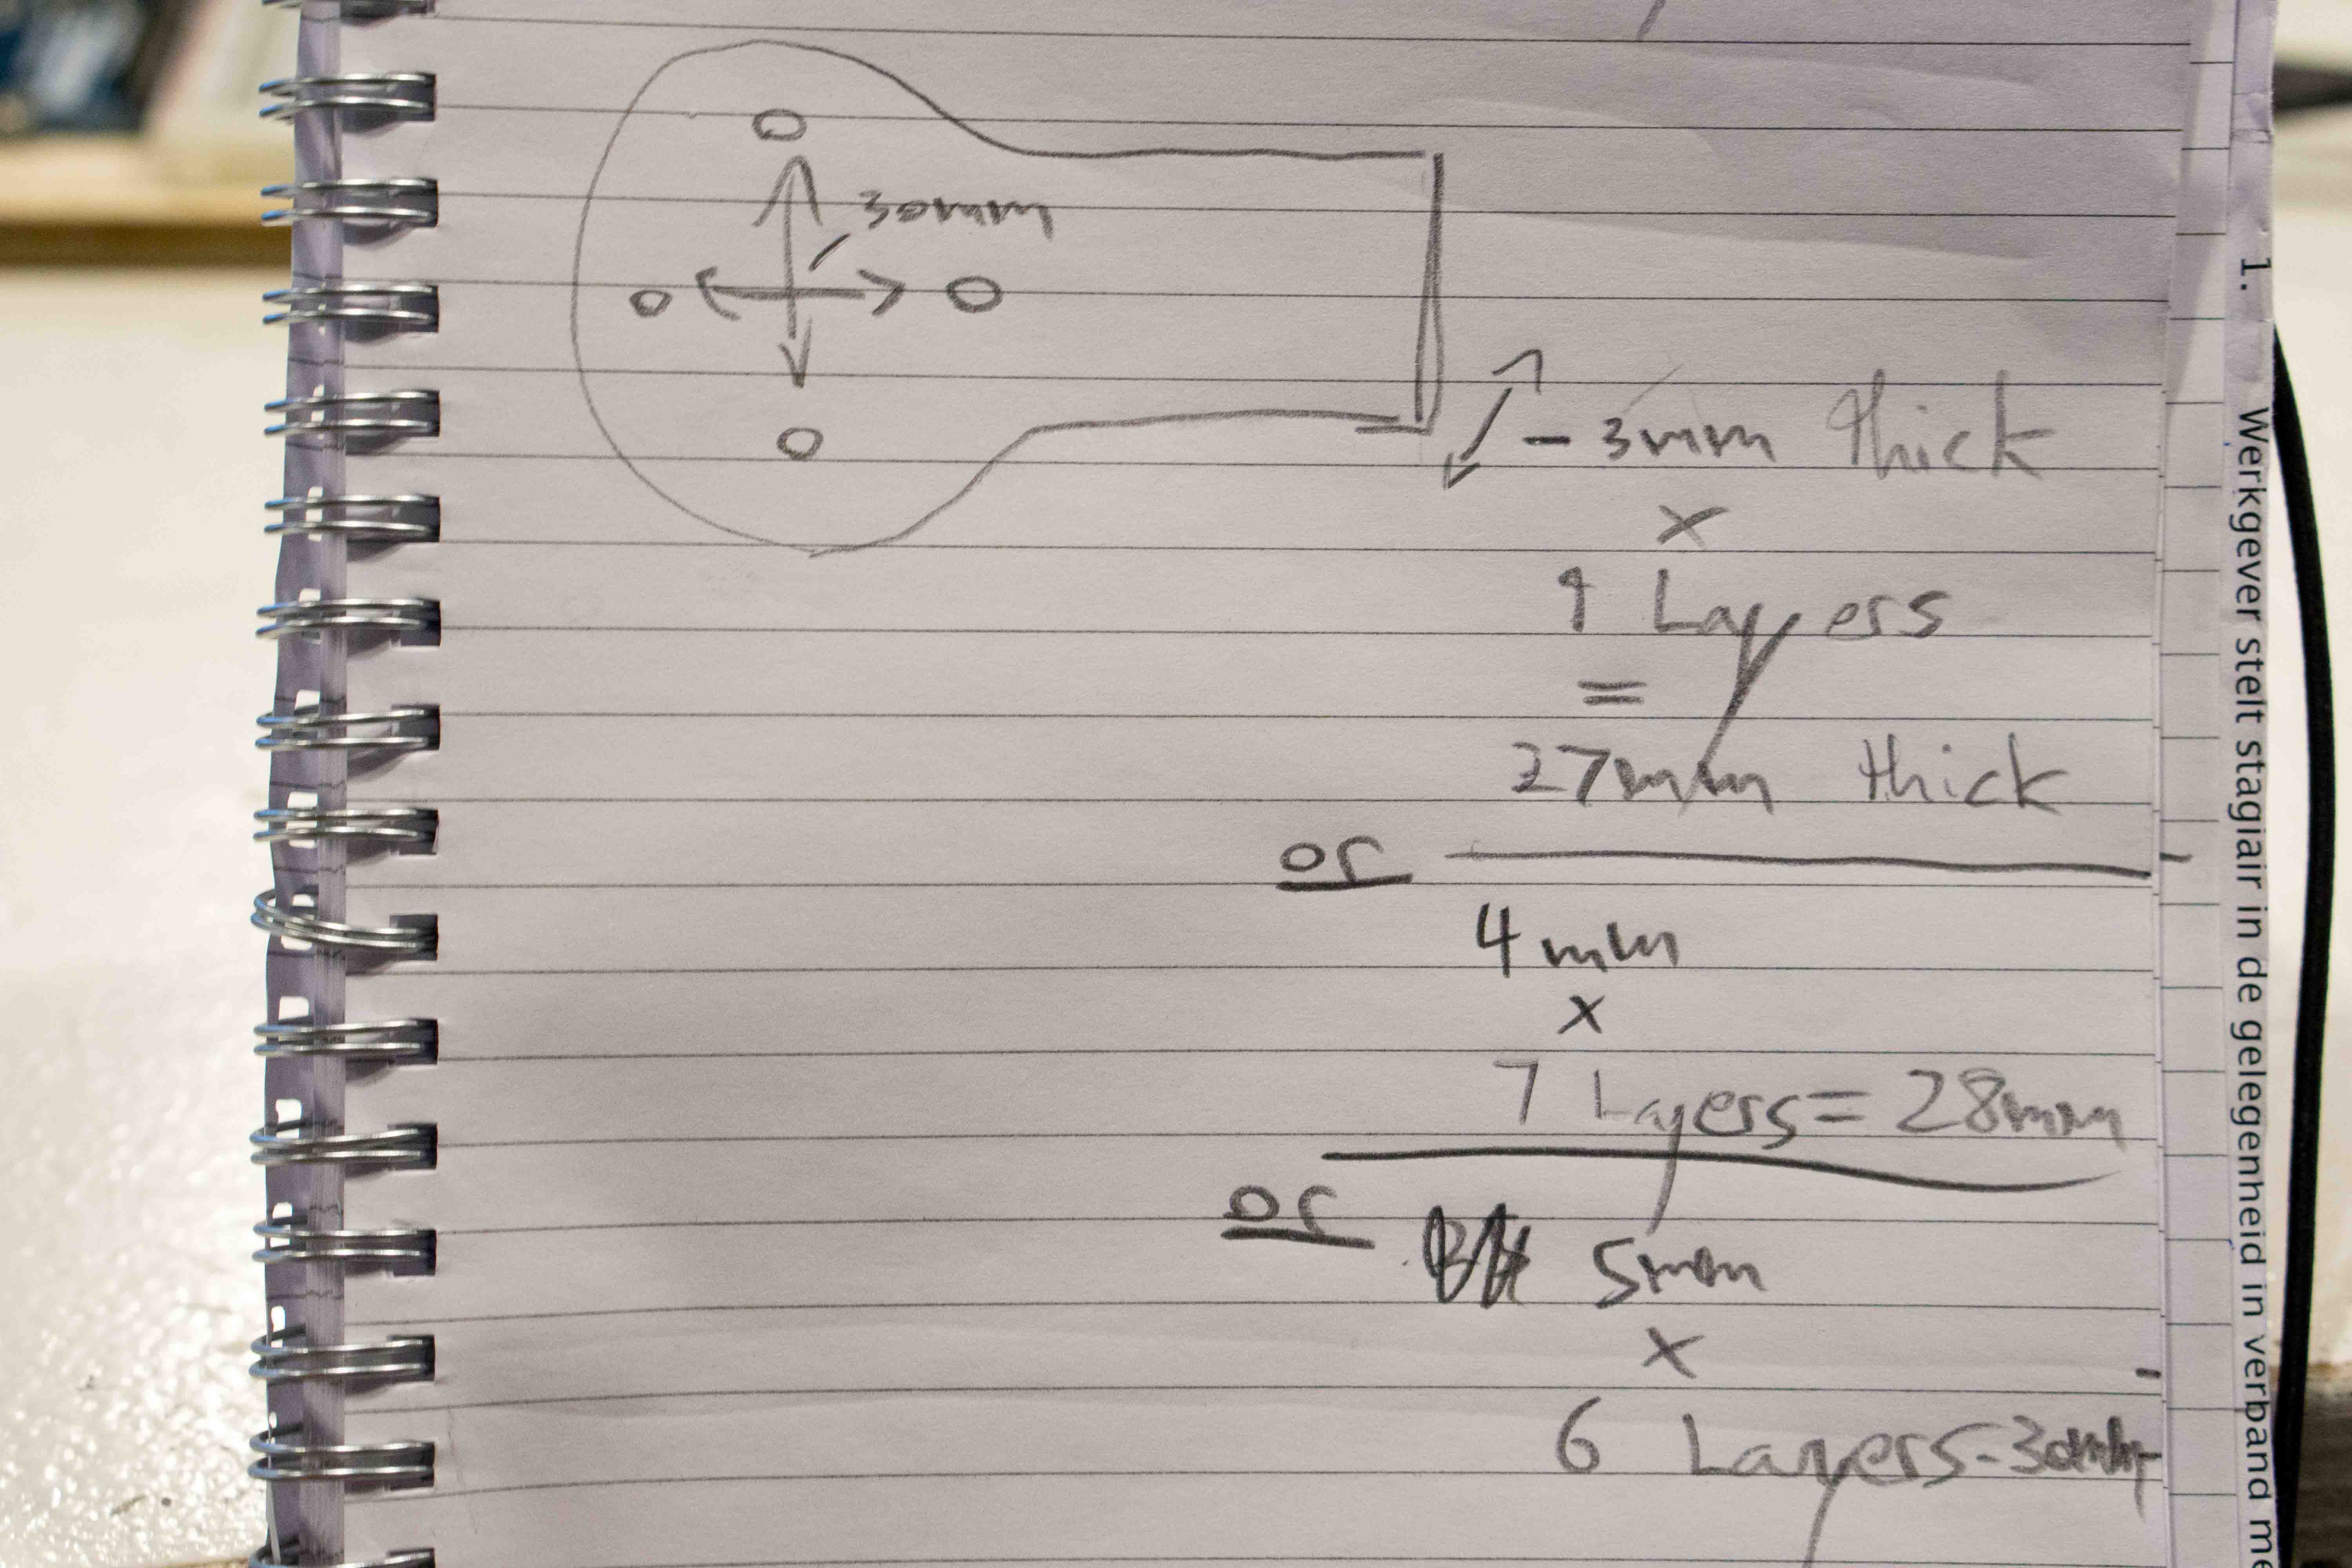 30mm
- 3mm thick
x
9 Layers
=
27mm thick
or
4mm
x
7 Layers = 28mm
or
5mm
x
6 Layers - 30mm
1. Werkgever stelt stagiair in de gelegenheid in verband me